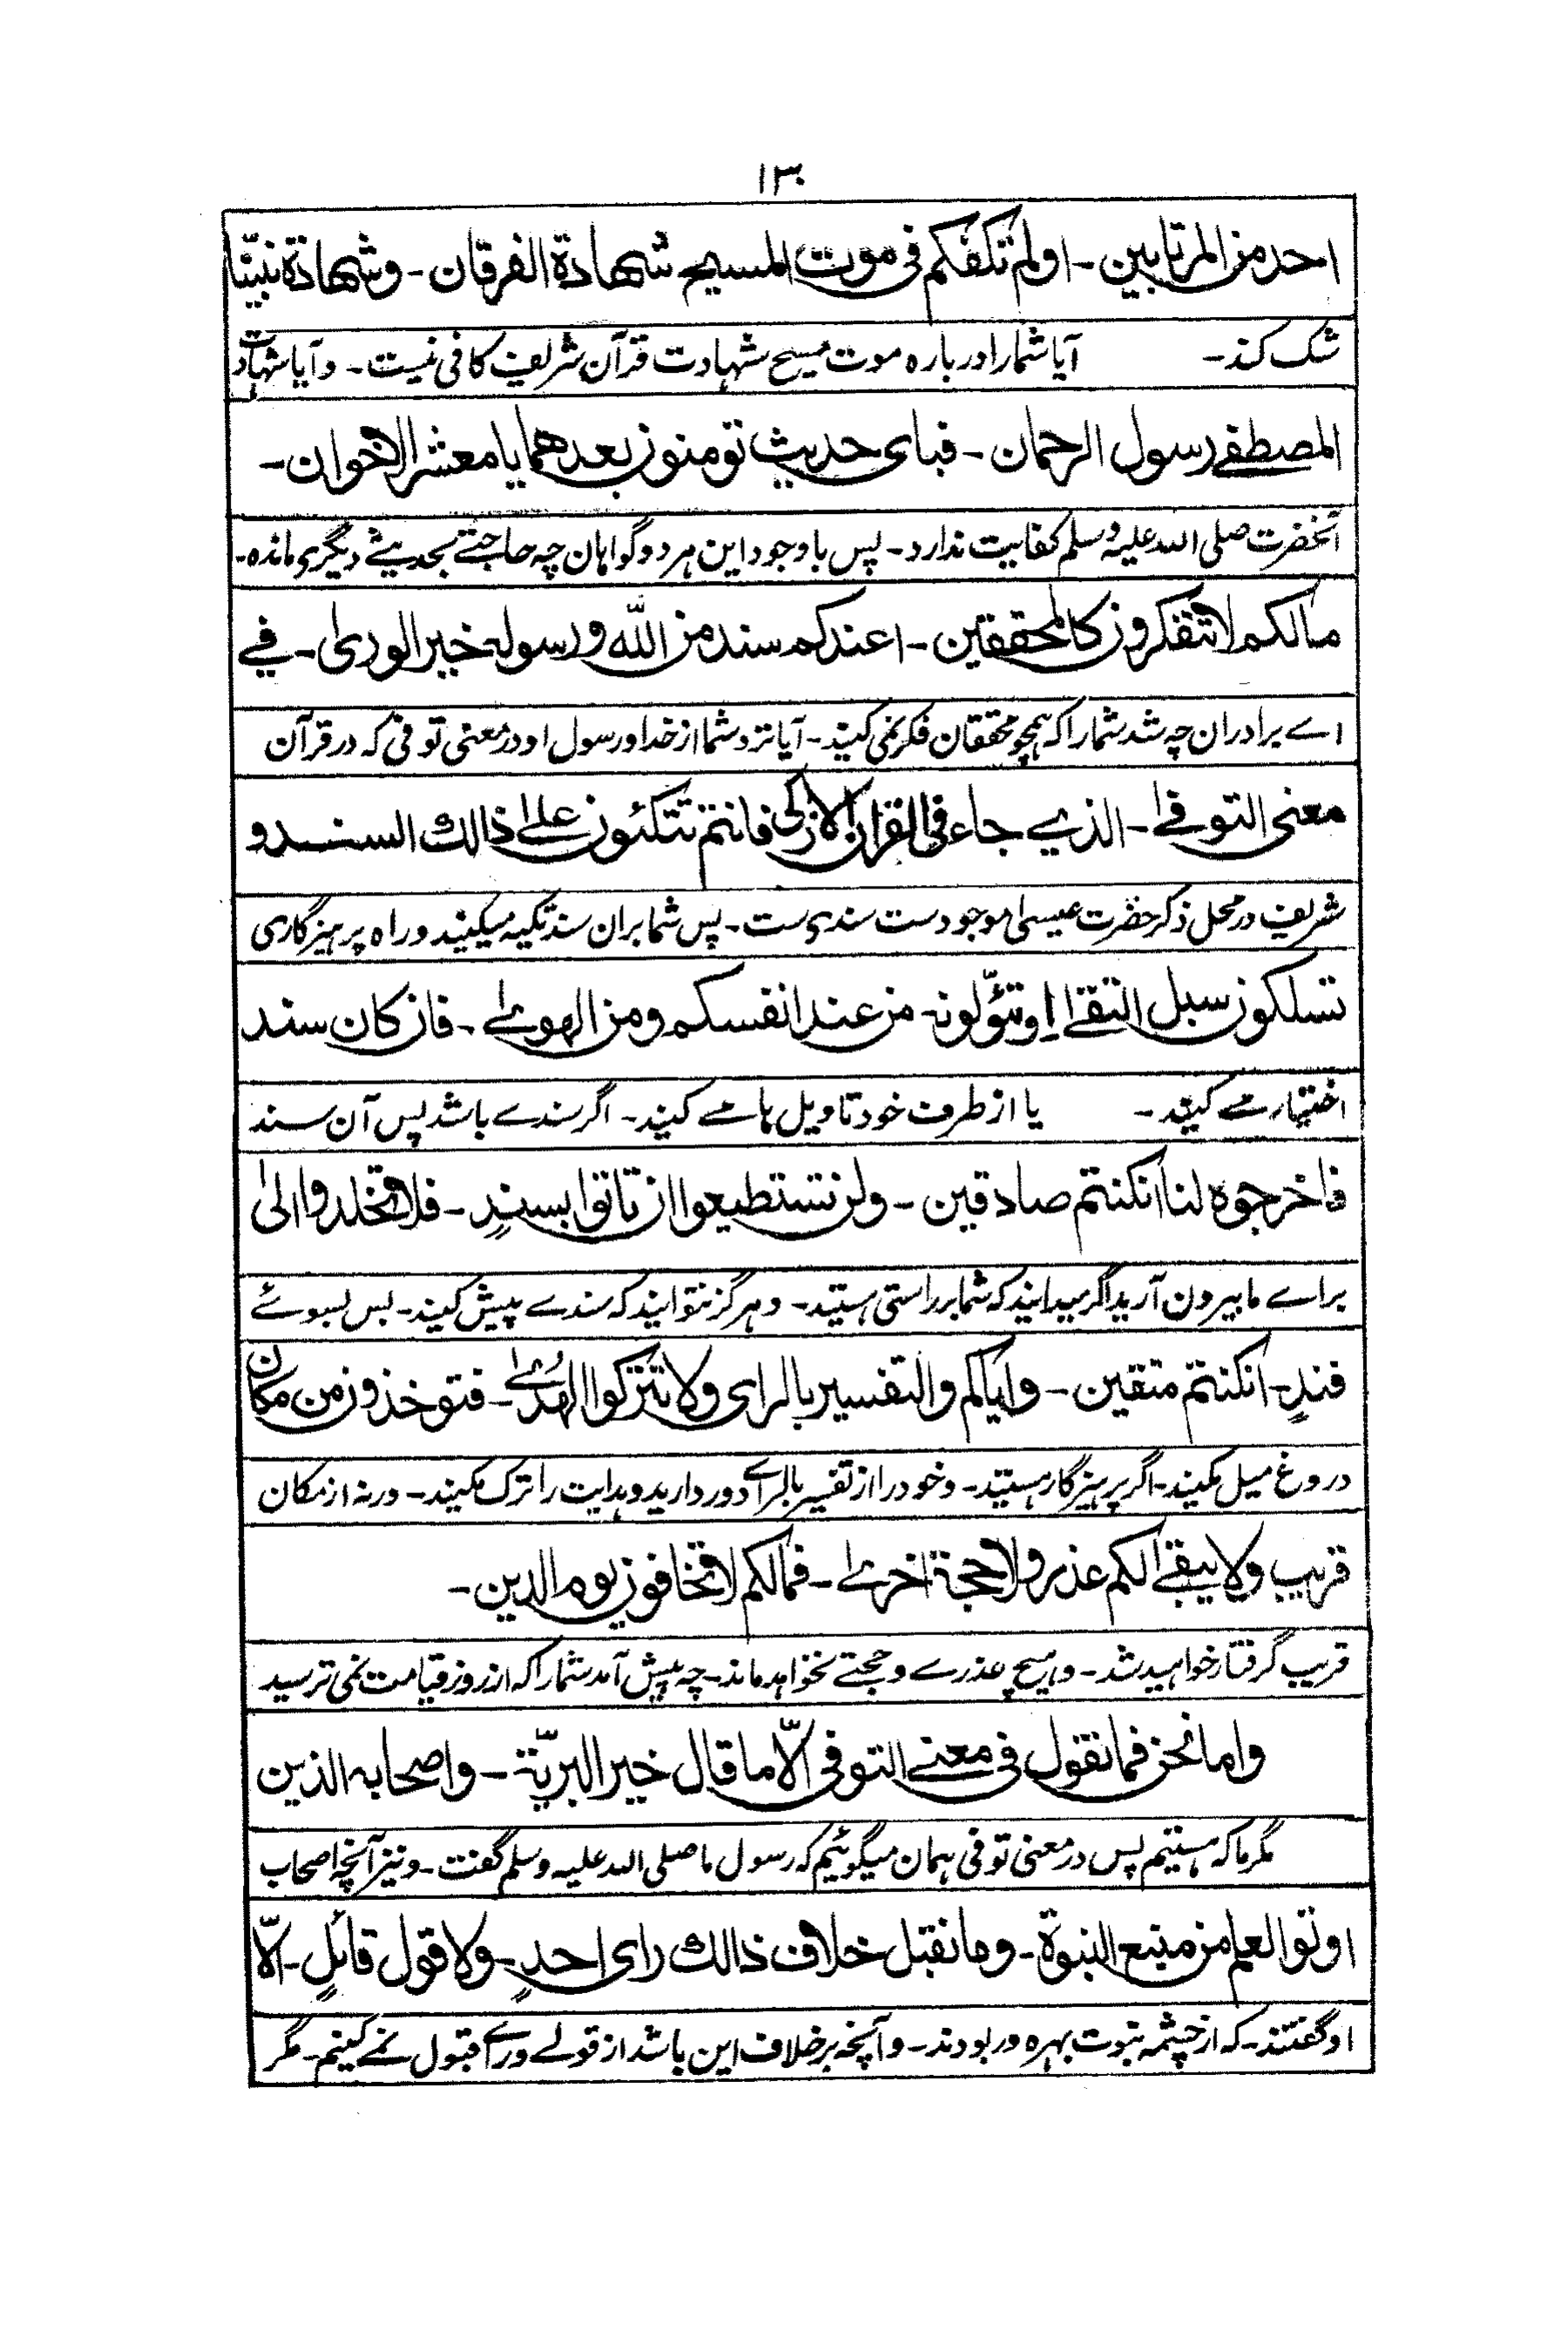 ۱۳۰
احد من المرتابين ـ اولم تكفكم فى موت المسيح شهادة الفرقان ـ وشهادة نبيّنا
شک کند ـ آیا شمارا درباره موت مسیح شهادت قرآن شریف کافی نیست ـ وآیا شهادت
المصطفے رسول الرحمان ـ فباى حديث تومنون بعدهما يا معشر الاخوان ـ
آنحضرت صلی اللہ علیہ وسلم کفایت ندارد ـ پس باوجود این هر دو گواهان چه حاجتے بحدیثے دیگری مانده ـ
مالكم لا تتفكرون كالمحققين ـ اعندكم سند من الله ورسوله خير الورىٰ ـ فے
اے برادران چه شد شمارا که همچو محققان فکر نمی کنید ـ آیا نزد شما از خدا و رسول او در معنی توفی که در قرآن
معنى التوفےٰ ـ الذے جاء فى القران الازكىٰ فانتم تتكئون علےٰ ذالك السند و
شریف در محل ذکر حضرت عیسیٰ موجودست سندی ست ـ پس شما بران سند تکیه میکنید و راه پرهیزگاری
تسلكون سبل التقےٰ او تئوّلونه ـ من عند انفسكم ومن الهوےٰ ـ فان كان سند
اختیار مے کنید ـ یا از طرف خود تاویل ها مے کنید ـ اگر سندے باشد پس آن سند
فاخرجوه لنا انكنتم صادقين ـ ولن تستطيعوا ان تاتوا بسندٍ ـ فلا تخلدوا الىٰ
براے ما بیرون آرید اگر میدانید که شما بر راستی هستید ـ وهرگز نتوانید که سندے پیش کنید ـ پس بسوئے
فندٍ ـ انكنتم متقين ـ واياكم والتفسير بالراى ولا تتركوا الهدےٰ ـ فتوخذون من مكان
دروغ میل مکنید ـ اگر پرهیزگار هستید ـ وخود را از تفسیر بالراے دور دارید وهدایت را ترک مکنید ـ ورنه از مکان
قريب ولا يبقےٰ لكم عذر ولا حجة اخرےٰ ـ فمالكم لا تخافون يوم الدين ـ
قریب گرفتار خواهید شد ـ وهیچ عذرے وحجتے نخواهد ماند ـ چه پیش آمد شمارا که از روز قیامت نمی ترسید
واما نحن فما نقول فى معنے التوفى الّا ما قال خير البريّة ـ واصحابه الذين
مگر ما که هستیم پس در معنی توفی همان میگوئیم که رسول ما صلی اللہ علیہ وسلم گفت ـ ونیز آنچه اصحاب
اوتوا العلم من منبع النبوة ـ وما نقبل خلاف ذالك راى احدٍ ـ ولا قول قائلٍ ـ الّا
او گفتند ـ که از چشمه نبوت بهره ور بودند ـ وآنچه برخلاف این باشد از قولے ورائے قبول نمے کنیم ـ مگر